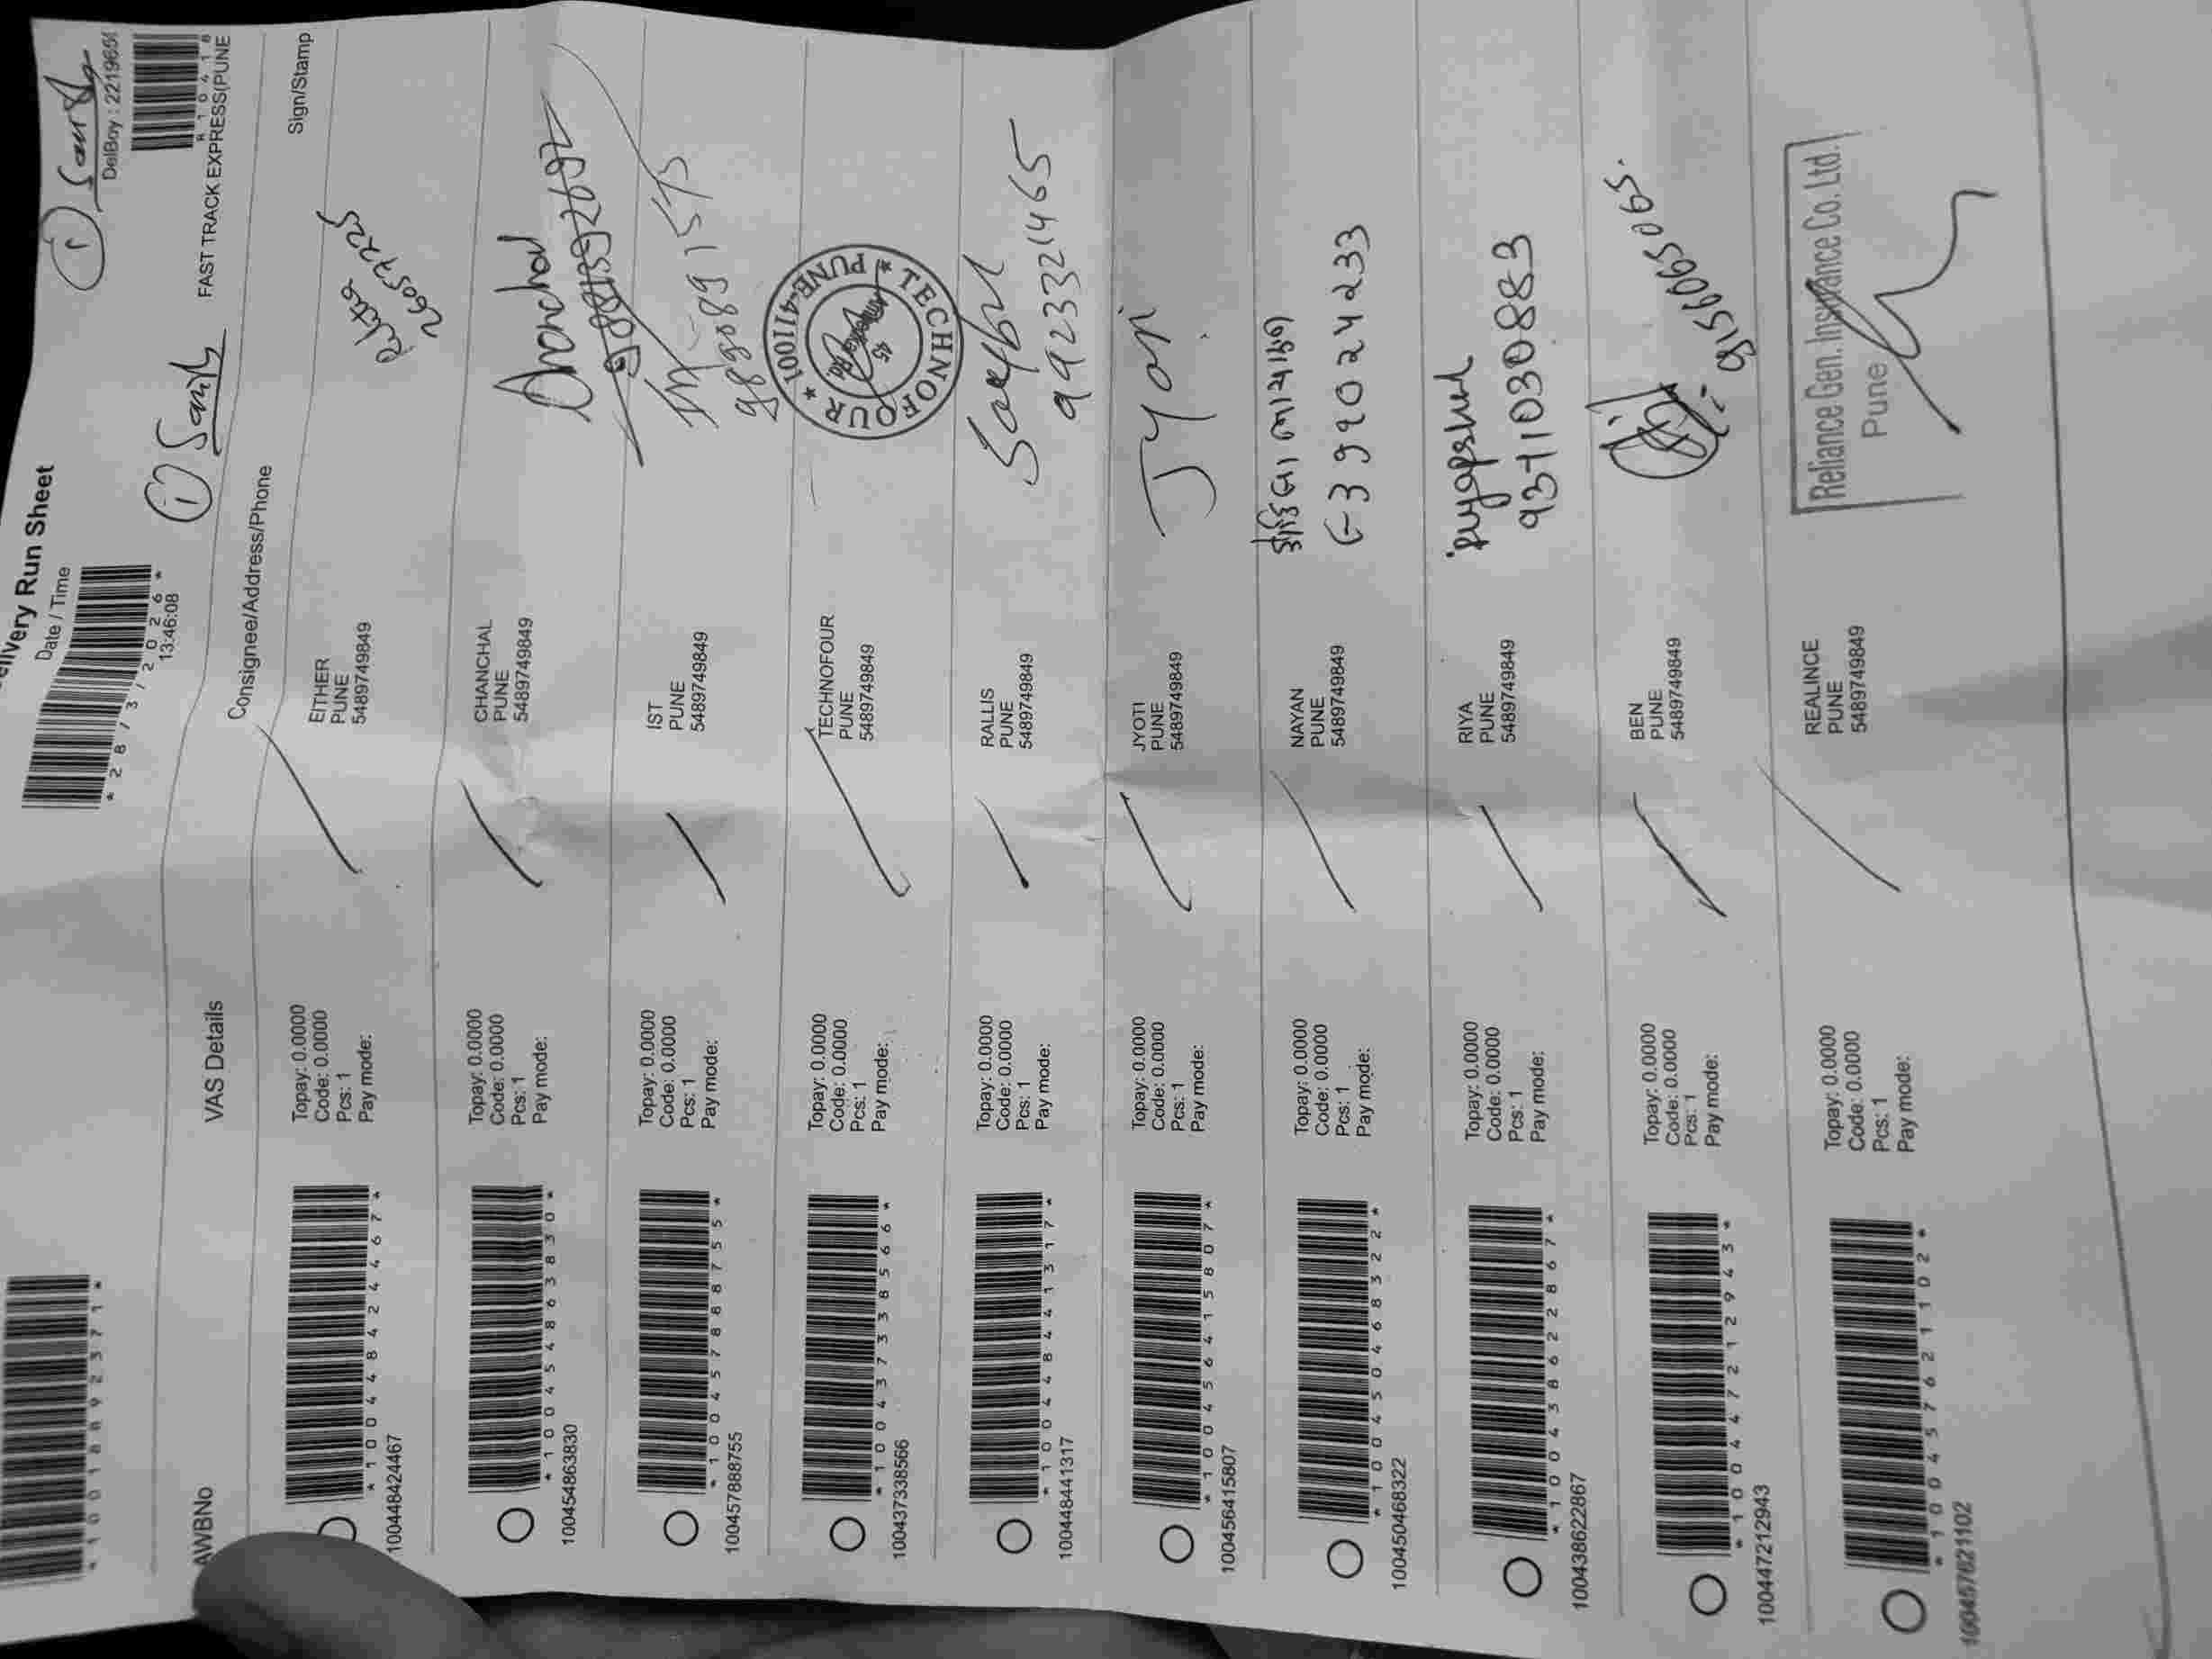 Delivery Run Sheet
Sandy
DelBoy : 2219656
Date / Time
*10018892371*
*28/7/2026*
13:46:08
Sandy
R10418
FAST TRACK EXPRESS(PUNE
AWBNo VAS Details Consignee/Address/Phone Sign/Stamp
*100448424467*
100448424467
Topay: 0.0000
Code: 0.0000
Pcs: 1
Pay mode:
EITHER
PUNE
5489749849
*100454863830*
100454863830
Topay: 0.0000
Code: 0.0000
Pcs: 1
Pay mode:
CHANCHAL
PUNE
5489749849
*100457888755*
100457888755
Topay: 0.0000
Code: 0.0000
Pcs: 1
Pay mode:
IST
PUNE
5489749849
*100437338566*
100437338566
Topay: 0.0000
Code: 0.0000
Pcs: 1
Pay mode:
TECHNOFOUR
PUNE
5489749849
* TECHNOFOUR * PUNE-411001
*100448441317*
100448441317
Topay: 0.0000
Code: 0.0000
Pcs: 1
Pay mode:
RALLIS
PUNE
5489749849
9923321465
*100456415807*
100456415807
Topay: 0.0000
Code: 0.0000
Pcs: 1
Pay mode:
JYOTI
PUNE
5489749849
Jyoti
*100450468322*
100450468322
Topay: 0.0000
Code: 0.0000
Pcs: 1
Pay mode:
NAYAN
PUNE
5489749849
*100438622867*
100438622867
Topay: 0.0000
Code: 0.0000
Pcs: 1
Pay mode:
RIYA
PUNE
5489749849
9371030883
*100447212943*
100447212943
Topay: 0.0000
Code: 0.0000
Pcs: 1
Pay mode:
BEN
PUNE
5489749849
9156065065.
*100457621102*
100457621102
Topay: 0.0000
Code: 0.0000
Pcs: 1
Pay mode:
REALINCE
PUNE
5489749849
Reliance Gen. Insurance Co. Ltd.
Pune